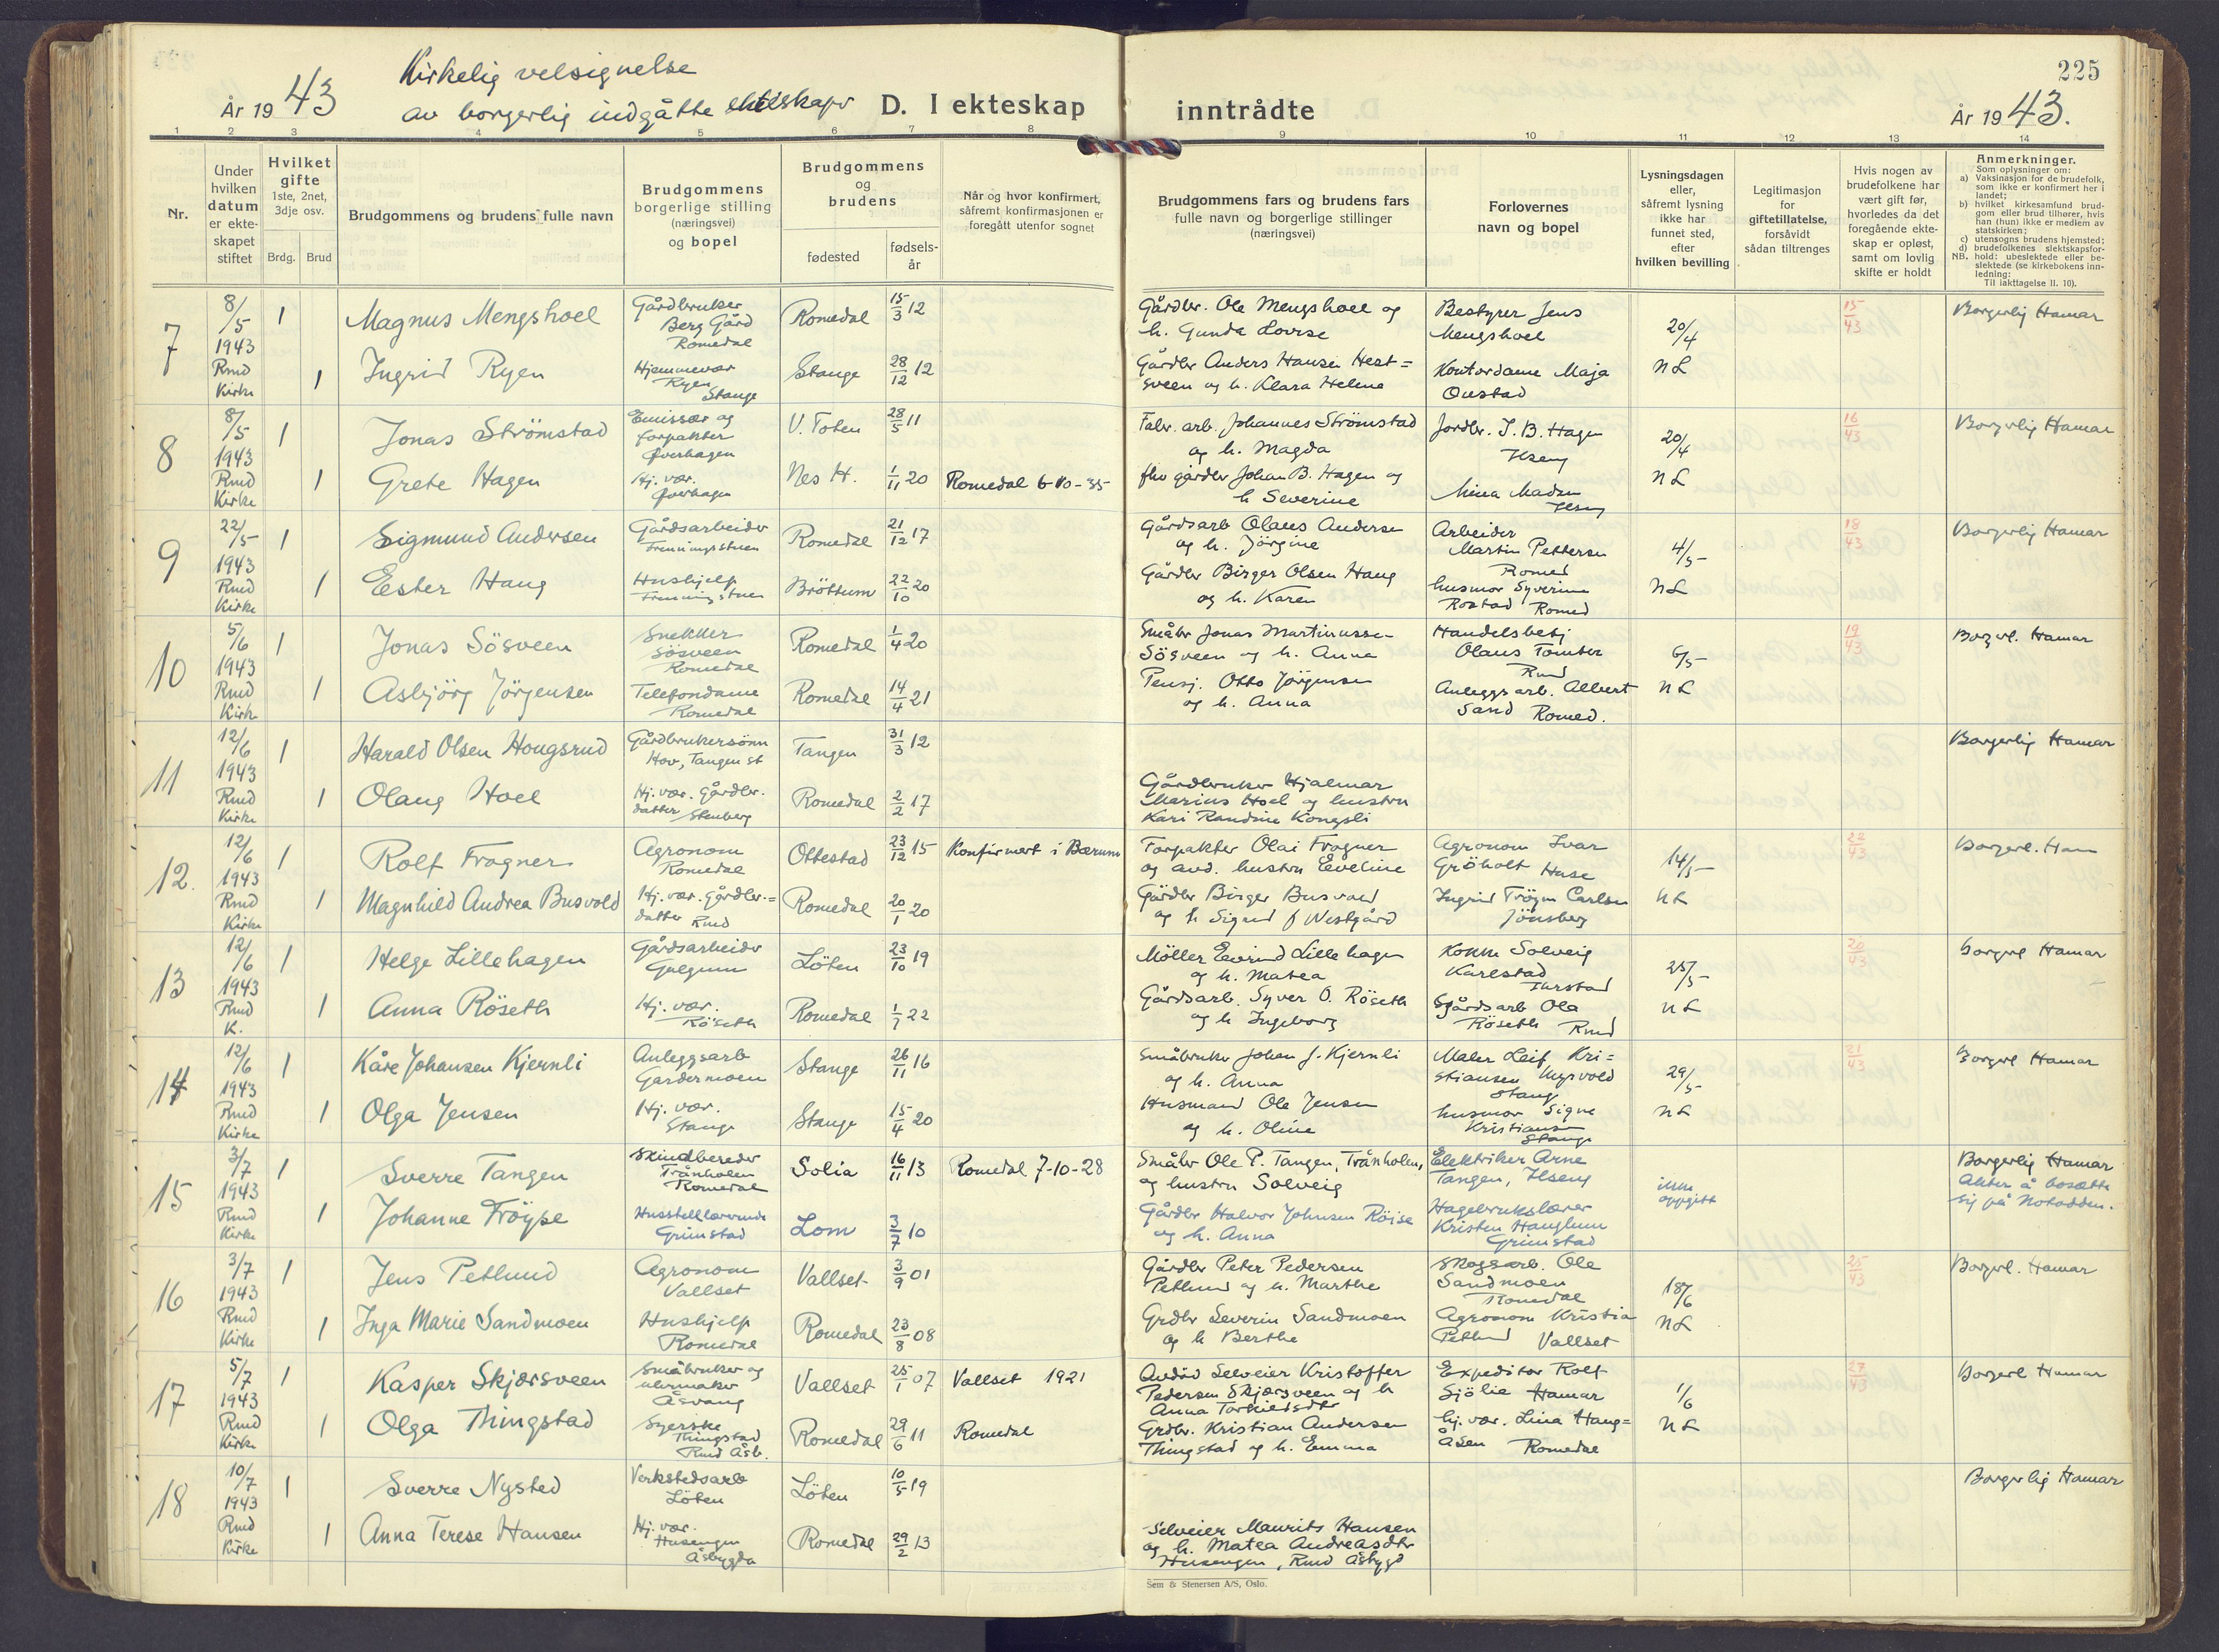 225
År 1943
Kirkelig velsignelse
av borgerlig indgåtte ekteskap
D. I ekteskap inntrådte
År 1943.
1 2 3 4 5 6 7 8 9 10 11 12 13 14
Nr.
Under hvilken datum er ekteskapet stiftet
Hvilket gifte
1ste, 2net, 3dje osv.
Brdg. Brud
Brudgommens og brudens fulle navn
Brudgommens borgerlige stilling (næringsvei) og bopel
Brudgommens og brudens
fødested
fødselsår
Når og hvor konfirmert, såfremt konfirmasjonen er foregått utenfor sognet
Brudgommens fars og brudens fars fulle navn og borgerlige stillinger (næringsvei)
Forlovernes navn og bopel
Lysningsdagen eller, såfremt lysning ikke har funnet sted, efter hvilken bevilling
Legitimasjon for giftetillatelse, forsåvidt sådan tiltrenges
Hvis nogen av brudefolkene har vært gift før, hvorledes da det foregående ekteskap er opløst, samt om lovlig skifte er holdt
Anmerkninger.
Som oplysninger om:
a) Vaksinasjon for de brudefolk, som ikke er konfirmert her i landet;
b) hvilket kirkesamfund brudgom eller brud tilhører, hvis han (hun) ikke er medlem av statskirken;
c) utensogns brudens hjemsted;
d) brudefolkenes slektskapsforhold: ubeslektede eller beslektede (se kirkebokens innledning:
NB.
Til iakttagelse II. 10).
7
8/5 1943 Rmd Kirke
1 Magnus Mengshoel
Gårdbruker Berg Gård Romedal
Romedal 15/3 12
Gårdbr. Ole Mengshoel og h. Gunda Lovise
Bestyrer Jens Mengshoel
20/4 NL
15/43
Borgerlig Hamar
1 Ingrid Ryen
Hjemmevær Ryen Stange
Stange 28/12 12
Gårdbr Anders Hansen Hestsveen og h. Klara Helene
Kontordame Maja Onstad
8
8/5 1943 Rmd Kirke
1 Jonas Strömstad
Emissær og forpakter Øverhagen
V. Toten 28/5 11
Fabr. arb. Johannes Strömstad og h. Magda
Jordbr. J. B. Hagen Ilseng
20/4 NL
16/43
Borgerlig Hamar
1 Grete Hagen
Hj. vær. Øverhagen
Nes H. 1/11 20
Romedal 6-10-35
fhv gårdbr Johan B. Hagen og h Severine
9
22/5 1943 Rmd Kirke
1 Sigmund Andersen
Gårdsarbeider
Romedal 21/12 17
Gårdsarb Olaus Andersen og h. Jörgine
Arbeider Martin Pettersen Romed
4/5 NL
18/43
Borgerlig Hamar
1 Ester Haug
Hushjelp
Bröttum 22/10 20
Gårdbr Birger Olsen Haug og h. Karen
husmor Syverine Rostad Romed
10
5/6 1943 Rmd Kirk
1 Jonas Sösveen
Snekker Sösveen Romedal
Romedal 1/4 20
Småbr Jonas Martinussen Sösveen og h. Anna
Handelsbetj Olaus Tomter Rmd
6/5 NL
19/43
Borgerl. Hamar
1 Asbjörg Jörgensen
Telefondame Romedal
Romedal 14/4 21
Pensj. Otto Jörgensen og h. Anna
Anleggsarb. Albert Sand Romed.
11
12/6 1943 Rmd Kirke
1 Harald Olsen Hougsrud
Gårdbrukersönn Hov, Tangen st
Tangen 31/3 12
Borgerlig Hamar
1 Olaug Hoel
Hj. vær. Gårdbr. datter Stenberg
Romedal 2/2 17
Gårdbruker Hjalmar Marius Hoel og hustru Kari Randine Kongsli
12.
12/6 1943 Rmd Kirke
1 Rolf Frogner
Agronom Romedal
Ottestad 23/12 15
Konfirmert i Bærum
Forpakter Olai Frogner og avd. hustru Eveline
Agronom Ivar Gröholt Huse
14/5 NL
22/43
Borgerl. Ham
1 Magnhild Andrea Busvold
Hj. vær. Gårdbr.= datter Rmd
Romedal 20/1 20
Gårdbr Birger Busvold og h Sigrid f Westgård
Ingrid Tröym Carlsen Jönsberg
13
12/6 1943 Rmd K.
1 Helge Lillehagen
Gårdsarbeider Gulgum
Löten 23/10 19
Möller Eivind Lillehagen og h. Matea
Kokke Solveig Karlstad
25/5 NL
20/43
Borgerl Hamar
1 Anna Röseth
Hj. vær. Röseth
Romedal 1/7 22
Gårdsarb. Syver O. Röseth og h Ingeborg
Gårdsarb Ola Röseth Rmd
14
12/6 1943 Rmd Kirke
1 Kåre Johansen Kjernli
Anleggsarb Gardermoen
Stange 26/11 16
Småbruker Johan J. Kjernli og h. Anna
Maler Leif Kristiansen Myrvold Stange
29/5 NL
21/43
Borgerl Hamar
1 Olga Jensen
Hj. vær. Stange
Stange 15/4 20
Husmand Ole Jensen og h. Oline
husmor Signe Kristiansen Stange
15
3/7 1943 Rmd Kirke
1 Sverre Tangen
Skindbereder Trånholen Romedal
Solia 16/11 13
Romedal 7-10-28
Småbr Ole P. Tangen, Trånholen, og hustru Solveig
Elektriker Arne Tangen, Ilseng
ikke oppgitt
Borgerlig Hamar
Akter å bosætte sig på Notodden.
1 Johanne Fröyse
Husstellærerinde Grimstad
Lom 3/7 10
Gårdbr Halvor Johnsen Röise og h. Anna
Hagebrukslærer Kristen Hauglum Grimstad
16
3/7 1943 Rmd Kirke
1 Jens Petlund
Agronom Vallset
Vallset 3/9 01
Gårdbr Peter Pedersen Petlund og h. Marthe
Skogsarb. Ole Sandmoen Romedal
18/6 NL
25/43
Borgerl. Hamar
1 Inga Marie Sandmoen
Hushjelp Romedal
Romedal 23/8 08
Grdbr Severin Sandmoen og h Berthe
Agronom Kristia Petlund Vallset
17
5/7 1943 Rmd Kirke
1 Kasper Skjærsveen
Småbruker og urmaker Åsvang
Vallset 25/1 07
Vallset 1921
Avdöd Selveier Kristoffer Pedersen Skjærsveen og h Anna Torkildsdtr
Expeditör Rolf Sjölie Hamar
1/6 NL
27/43
Borgerl Hamar
1 Olga Thingstad
Syerske Thingstad Rmd Åsb.
Romedal 29/6 11
Romedal
Grdbr. Kristian Andersen Thingstad og h. Emma
hj. vær. Lina Haug= åsen Romedal
18
10/7 1943 Rmd Kirke
1 Sverre Nysted
Verkstedsarb Löten
Löten 10/5 19
Borgerlig Hamar
1 Anna Terese Hansen
Hj. vær. Husengen Åsbygda
Romedal 29/2 13
Selveier Maurits Hansen og h. Matea Andreasdtr Husengen, Rmd Åsbygd
Sem & Stenersen A/S, Oslo.